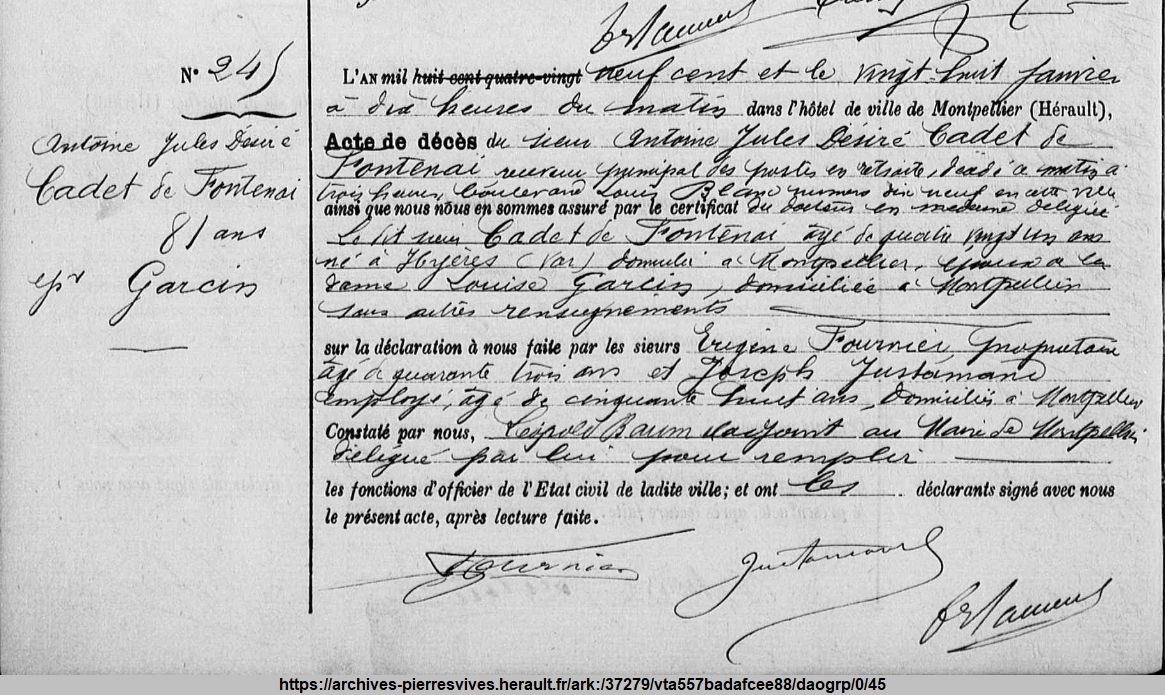 N° 245
Antoine Jules Désiré
Cadet de Fontenai
81 ans
epx Garcin
L'AN mil huit cent quatre-vingt neuf cent et le vingt huit janvier
à dix heures du matin dans l'hôtel de ville de Montpellier (Hérault),
Acte de décès du sieur Antoine Jules Désiré Cadet de
Fontenai receveur principal des postes en retraite, décédé ce matin à
trois heures, boulevard Louis Blanc numero dix neuf en cette ville
ainsi que nous nous en sommes assuré par le certificat du docteur en médecine délégué
Le dit sieur Cadet de Fontenai âgé de quatre vingt un ans
né à Hyères (Var) domicilié à Montpellier, époux de la
dame Louise Garcin, domiciliée à Montpellier
sans autres renseignements
sur la déclaration à nous faite par les sieurs Eugène Fournier, propriétaire
âgé de quarante trois ans et Joseph Justamand
employé, âgé de cinquante huit ans, domiciliés à Montpellier
Constaté par nous, Léopold Baum adjoint au Maire de Montpellier
délégué par lui pour remplir
les fonctions d'officier de l'Etat civil de ladite ville; et ont les déclarants signé avec nous
le présent acte, après lecture faite.
Fournier Justamand
https://archives-pierresvives.herault.fr/ark:/37279/vta557badafcee88/daogrp/0/45